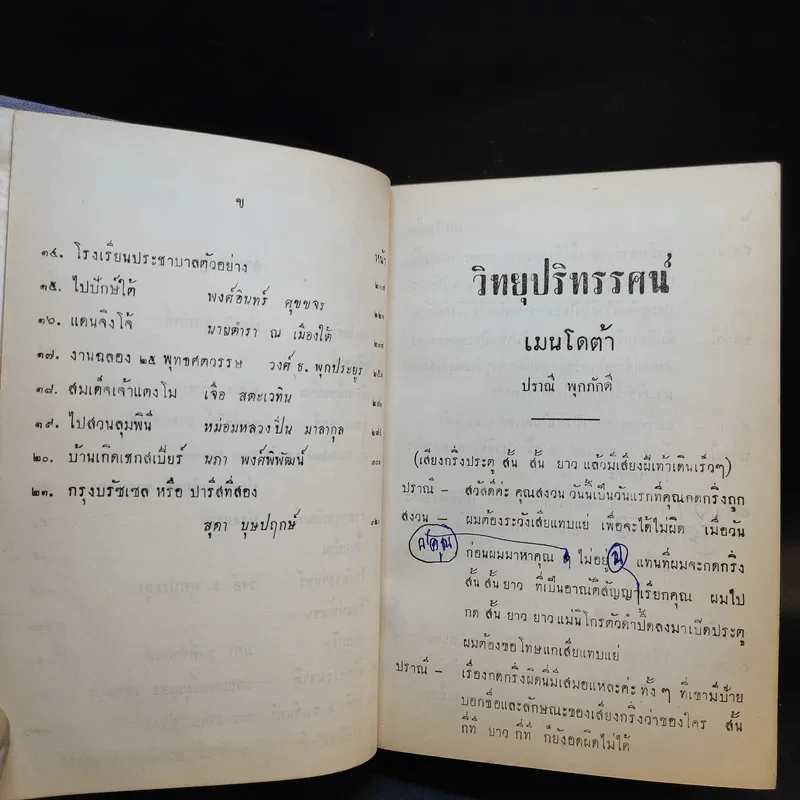 ข
หน้า
๑๔. โรงเรียนประชาบาลตัวอย่าง
๑๕. ไปปักษ์ใต้ พงศ์อินทร์ ศุขขจร
๑๖. แดนจิงโจ้ นายตำรา ณ เมืองใต้
๑๗. งานฉลอง ๒๕ พุทธศตวรรษ วงศ์ ธ. พุกประยูร
๑๘. สมเด็จเจ้าแตงโม เจือ สตะเวทิน
๑๙. ไปสวนลุมพินี หม่อมหลวงปิ่น มาลากุล
๒๐. บ้านเกิดเชกสเปียร์ นภา พงศ์พิพัฒน์
๒๑. กรุงบรัซเซล หรือ ปารีสที่สอง
สุดา บุษปฤกษ์
วิทยุปริทรรศน์
เมนโดต้า
ปราณี พุกภักดี
(เสียงกริ่งประตู สั้น สั้น ยาว แล้วมีเสียงฝีเท้าเดินเร็วๆ)
ปราณี – สวัสดีค่ะ คุณสงวน วันนี้เป็นวันแรกที่คุณกดกริ่งถูก
สงวน – ผมต้องระวังเสียแทบแย่ เพื่อจะได้ไม่ผิด เมื่อวัน
ก่อนผมมาหาคุณ ๆ ไม่อยู่ แทนที่ผมจะกดกริ่ง
สั้น สั้น ยาว ที่เป็นอาณัติสัญญาเรียกคุณ ผมไป
กด สั้น ยาว ยาว แม่นิโกรตัวดำปื้ดลงมาเปิดประตู
ผมต้องขอโทษแกเสียแทบแย่
ปราณี – เรื่องกดกริ่งผิดนี่มีเสมอแหละค่ะ ทั้ง ๆ ที่เขามีป้าย
บอกชื่อและลักษณะของเสียงกริ่งว่าของใคร สั้น
กี่ที ยาว กี่ที ก็ยังอดผิดไม่ได้